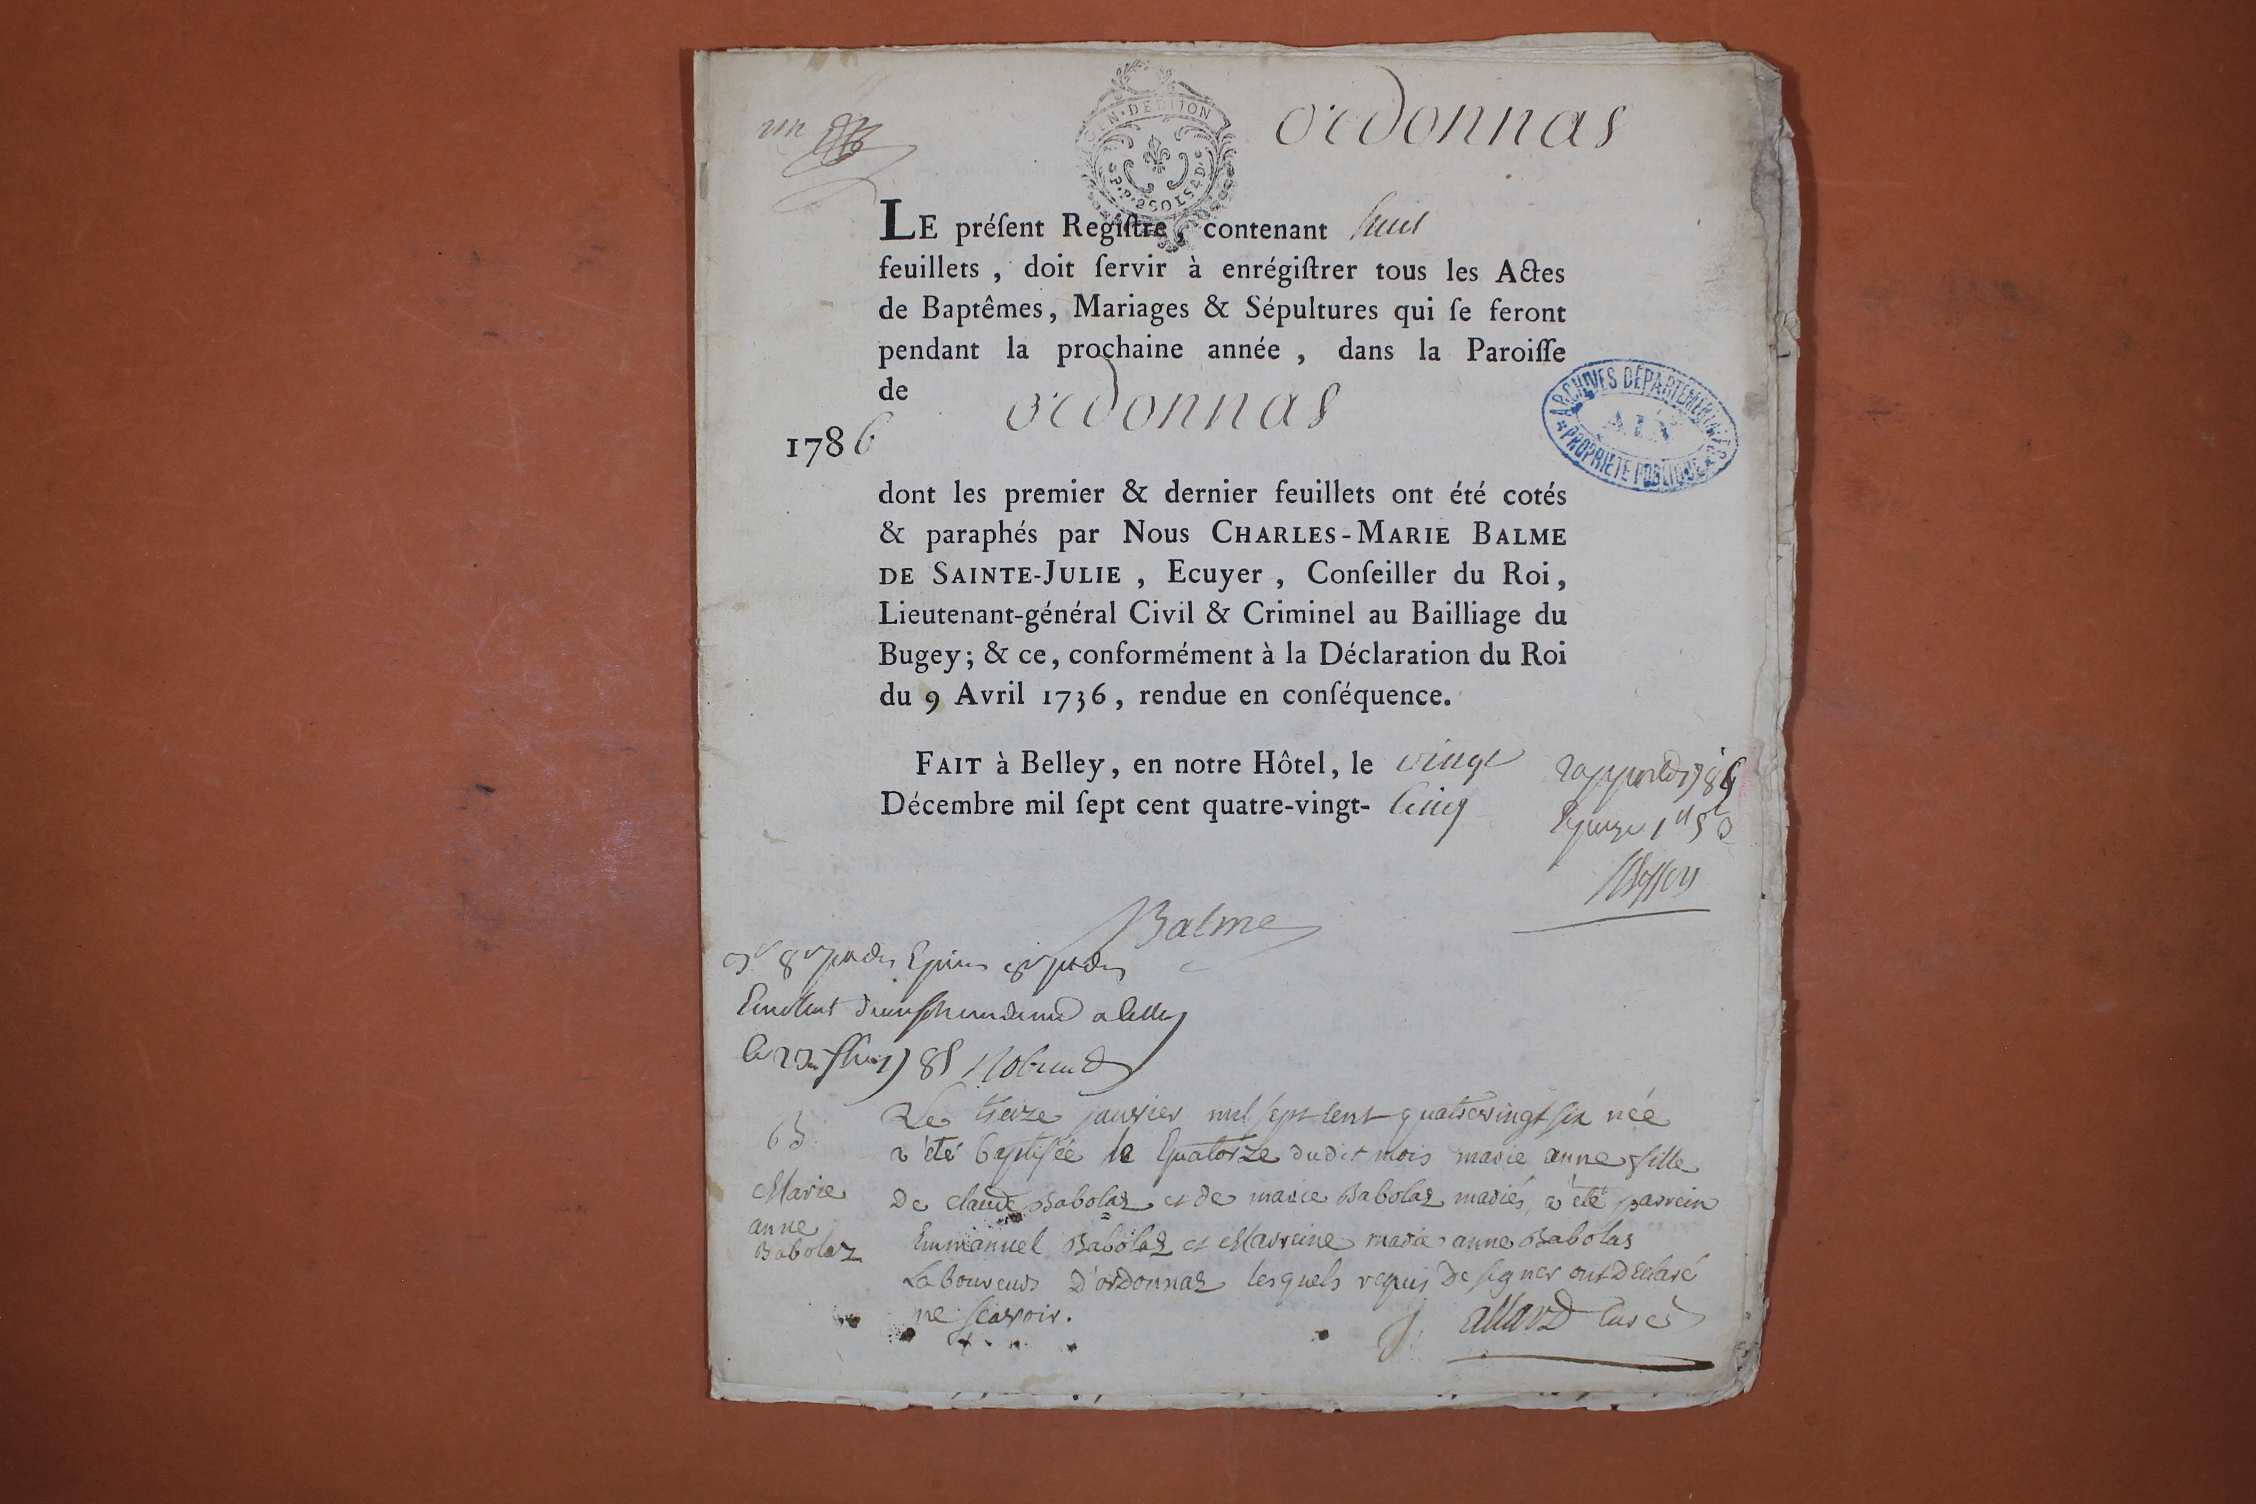 un
GEN. DE DIJON
P.P. 2 SOLS 8.D.
ordonnas
LE préſent Regiſtre, contenant huit
feuillets, doit ſervir à enrégiſtrer tous les Actes
de Baptêmes, Mariages & Sépultures qui ſe feront
pendant la prochaine année, dans la Paroiſſe
de ordonnas
1786
ARCHIVES DÉPARTEMENTALES
AIN
PROPRIÉTÉ PUBLIQUE
dont les premier & dernier feuillets ont été cotés
& paraphés par Nous CHARLES-MARIE BALME
DE SAINTE-JULIE, Ecuyer, Conſeiller du Roi,
Lieutenant-général Civil & Criminel au Bailliage du
Bugey; & ce, conformément à la Déclaration du Roi
du 9 Avril 1736, rendue en conſéquence.
FAIT à Belley, en notre Hôtel, le vingt
Décembre mil ſept cent quatre-vingt- cinq
Balme
Le treize janvier mil sept cent quatrevingt six née
a été baptisée le quatorze dudit mois marie anne fille
De claude Babolaz et de marie Babolaz mariés, a été parrein
Emmanuel Babolaz et Marreine marie anne Babolas
Laboureurs D'ordonnaz lesquels requis de signer ont Déclaré
ne scavoir.
allard curé
B
Marie
anne
Babolaz